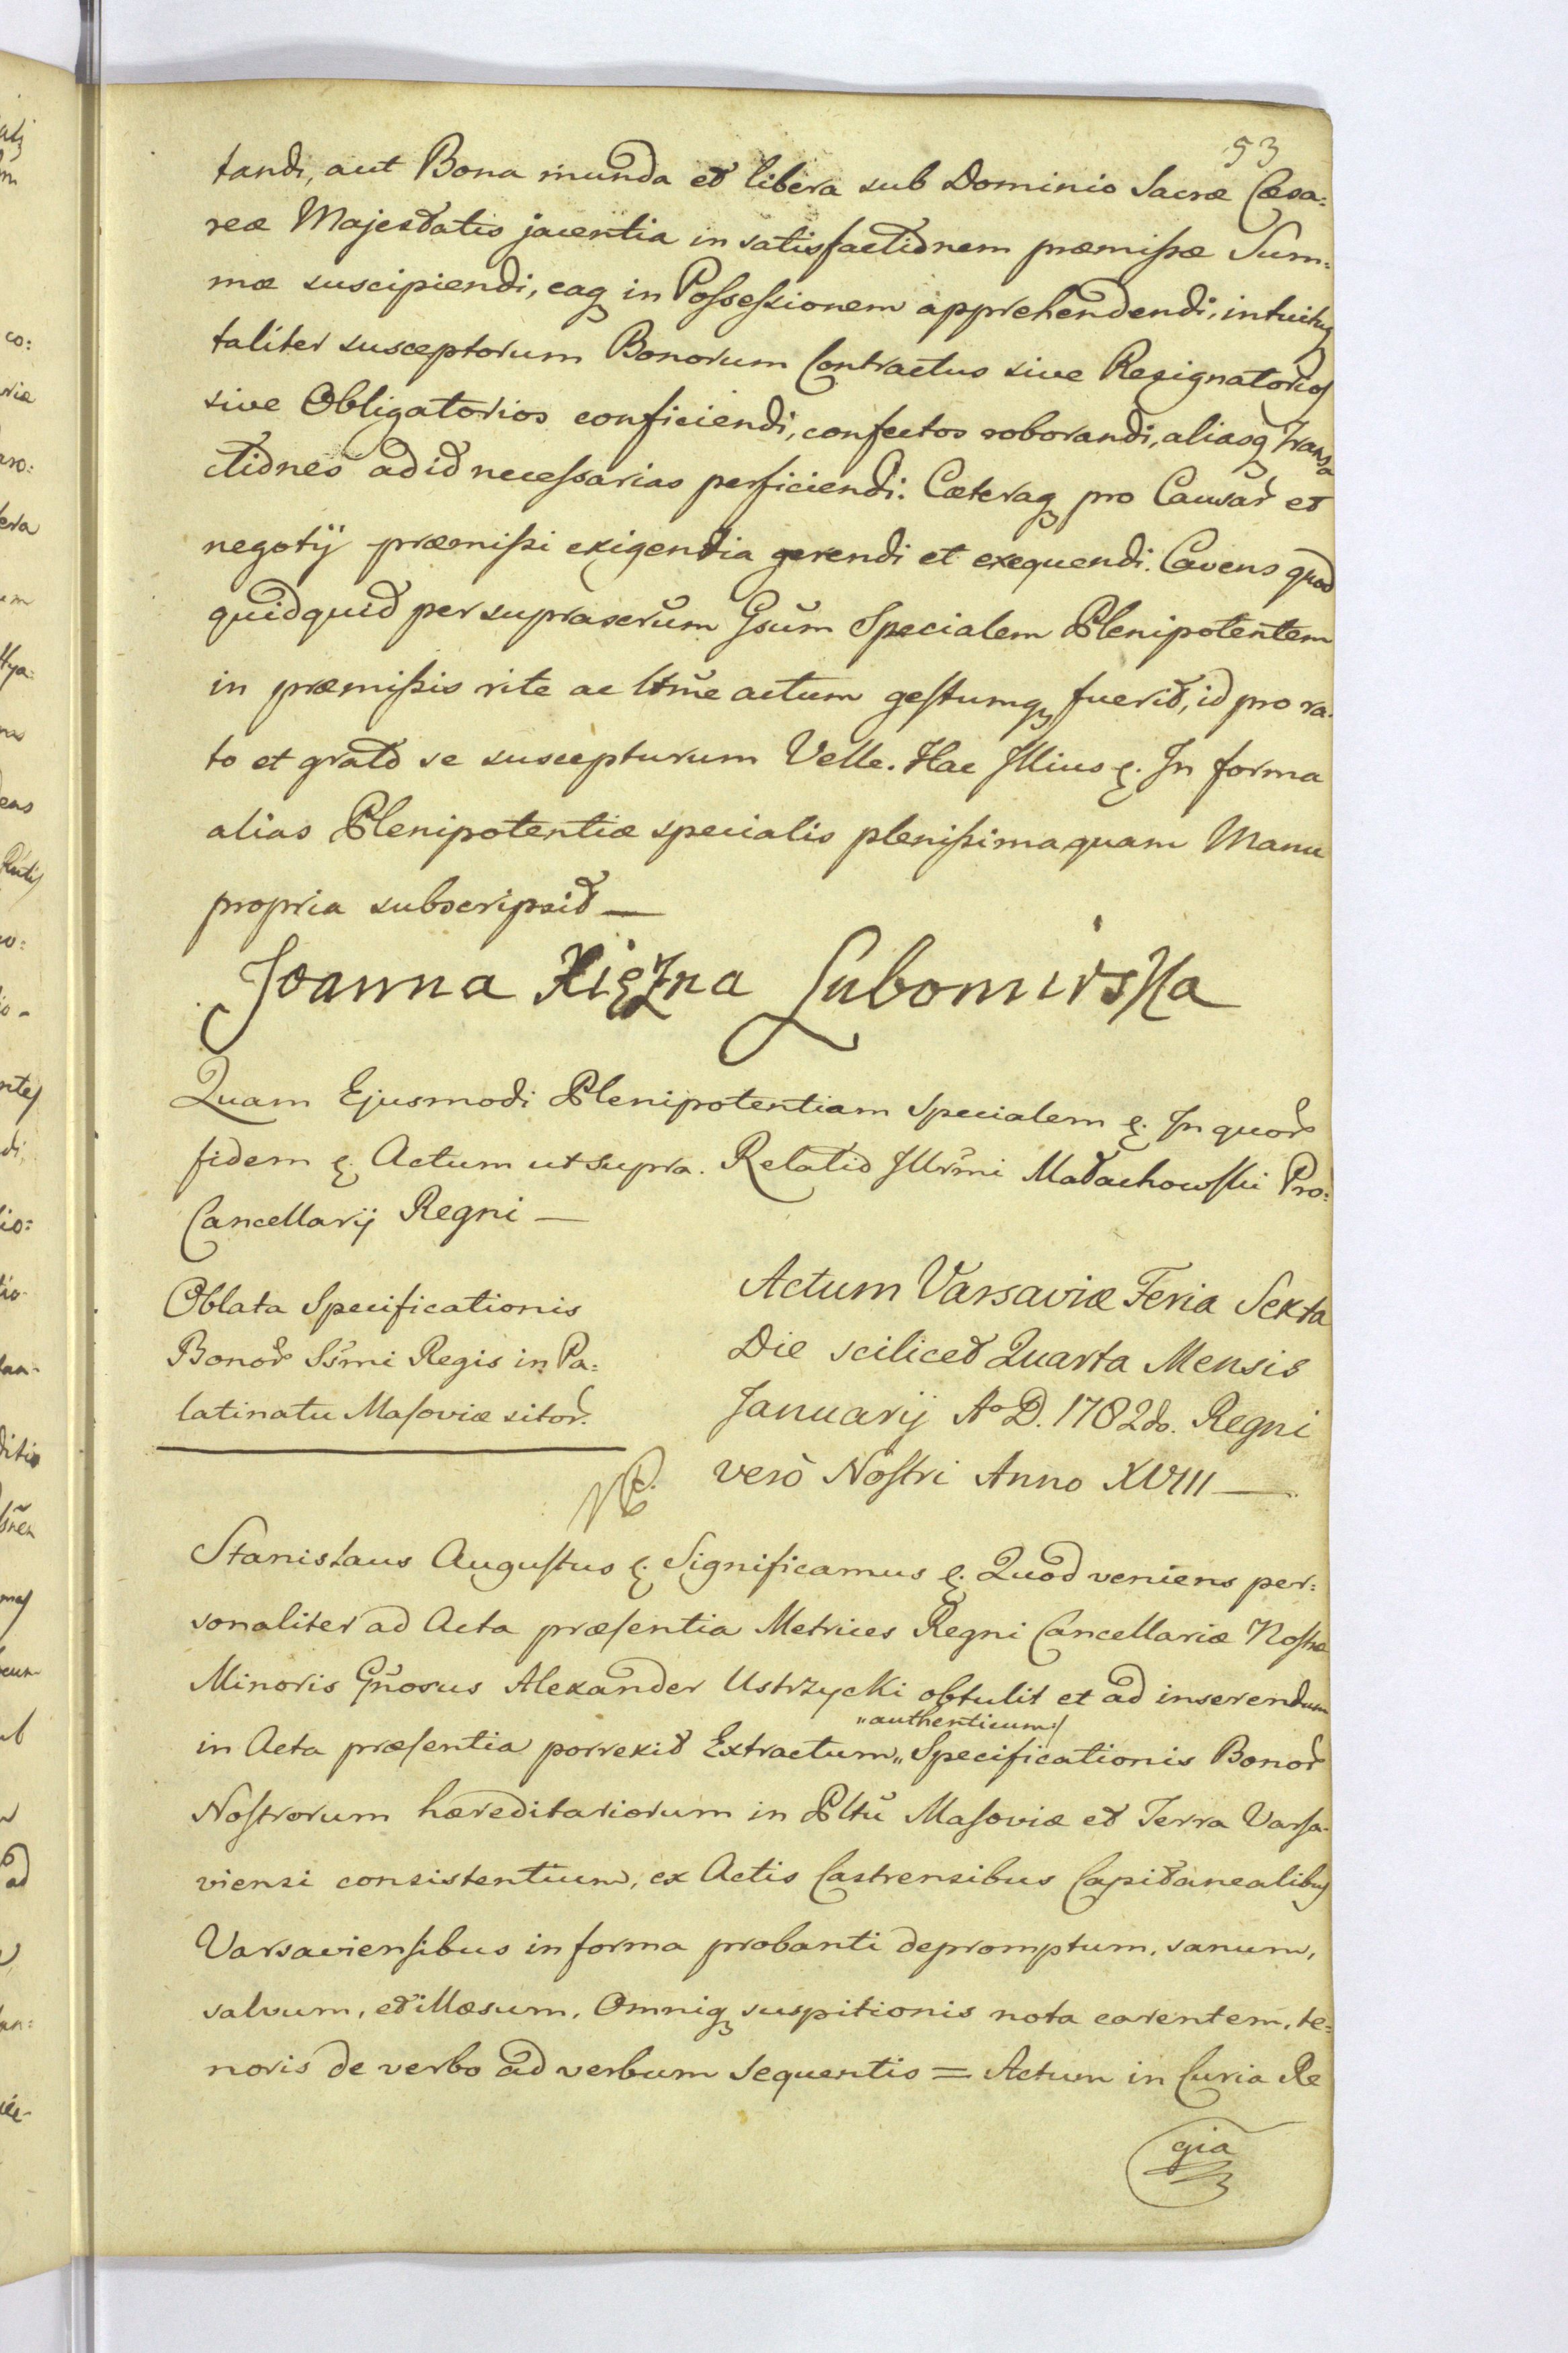 53
tandi, aut Bona munda et libera sub Dominio Sacræ Cæsa:
reæ Majestatis jacentia in satisfactionem præmissæ Sum:
mæ suscipiendi, eaq in Possessionem apprehendendi, intuituq
taliter susceptorum Bonorum Contractus sive Resignatorios
sive Obligatorios conficiendi, confectos roborandi, aliasq Transa
ctiones ad id necessarias perficiendi. Cæteraq pro Causar et
negotij præmissi exigentia gerendi et exequendi. Cavens quod
quidquid per suprascrũm Gsũm Specialem Plenipotentem
in præmissis rite ac ltm̃e actum gestumq fuerit, id pro ra:
to et grato se suscepturum Velle. Hac Illius ę. In forma
alias Plenipotentiæ specialis plenissima, quam Manu
propria subscripsit —
Joanna Xiężna Lubomirska
Quam Ejusmodi Plenipotentiam Specialem ę. In quor
fidem ę. Actum ut supra. Relatio Illrm̃i Małachowski Pro:
Cancellarij Regni —
Oblata Specificationis
Bonor Ss̃mi Regis in Pa:
latinatu Masoviæ sitor.
Actum Varsaviæ Feria Sexta
Die scilicet Quarta Mensis
Januarij Aº D. 1782do. Regni
verò Nostri Anno XVIII —
Stanislaus Augustus ę. Significamus ę. Quod veniens per:
sonaliter ad Acta præsentia Metrices Regni Cancellariæ Nostræ
Minoris Gñosus Alexander Ustrzycki obtulit et ad inserendum
„authenticum/
in Acta præsentia porrexit Extractum„ Specificationis Bonor
Nostrorum hæreditariorum in Pltũ Masoviæ et Terra Varsa:
viensi consistentium, ex Actis Castrensibus Capitanealibus
Varsaviensibus in forma probanti depromptum, sanum,
salvum, et illæsum, Omniq suspitionis nota carentem, te=
noris de verbo ad verbum sequentis = Actum in Curia Re
gia